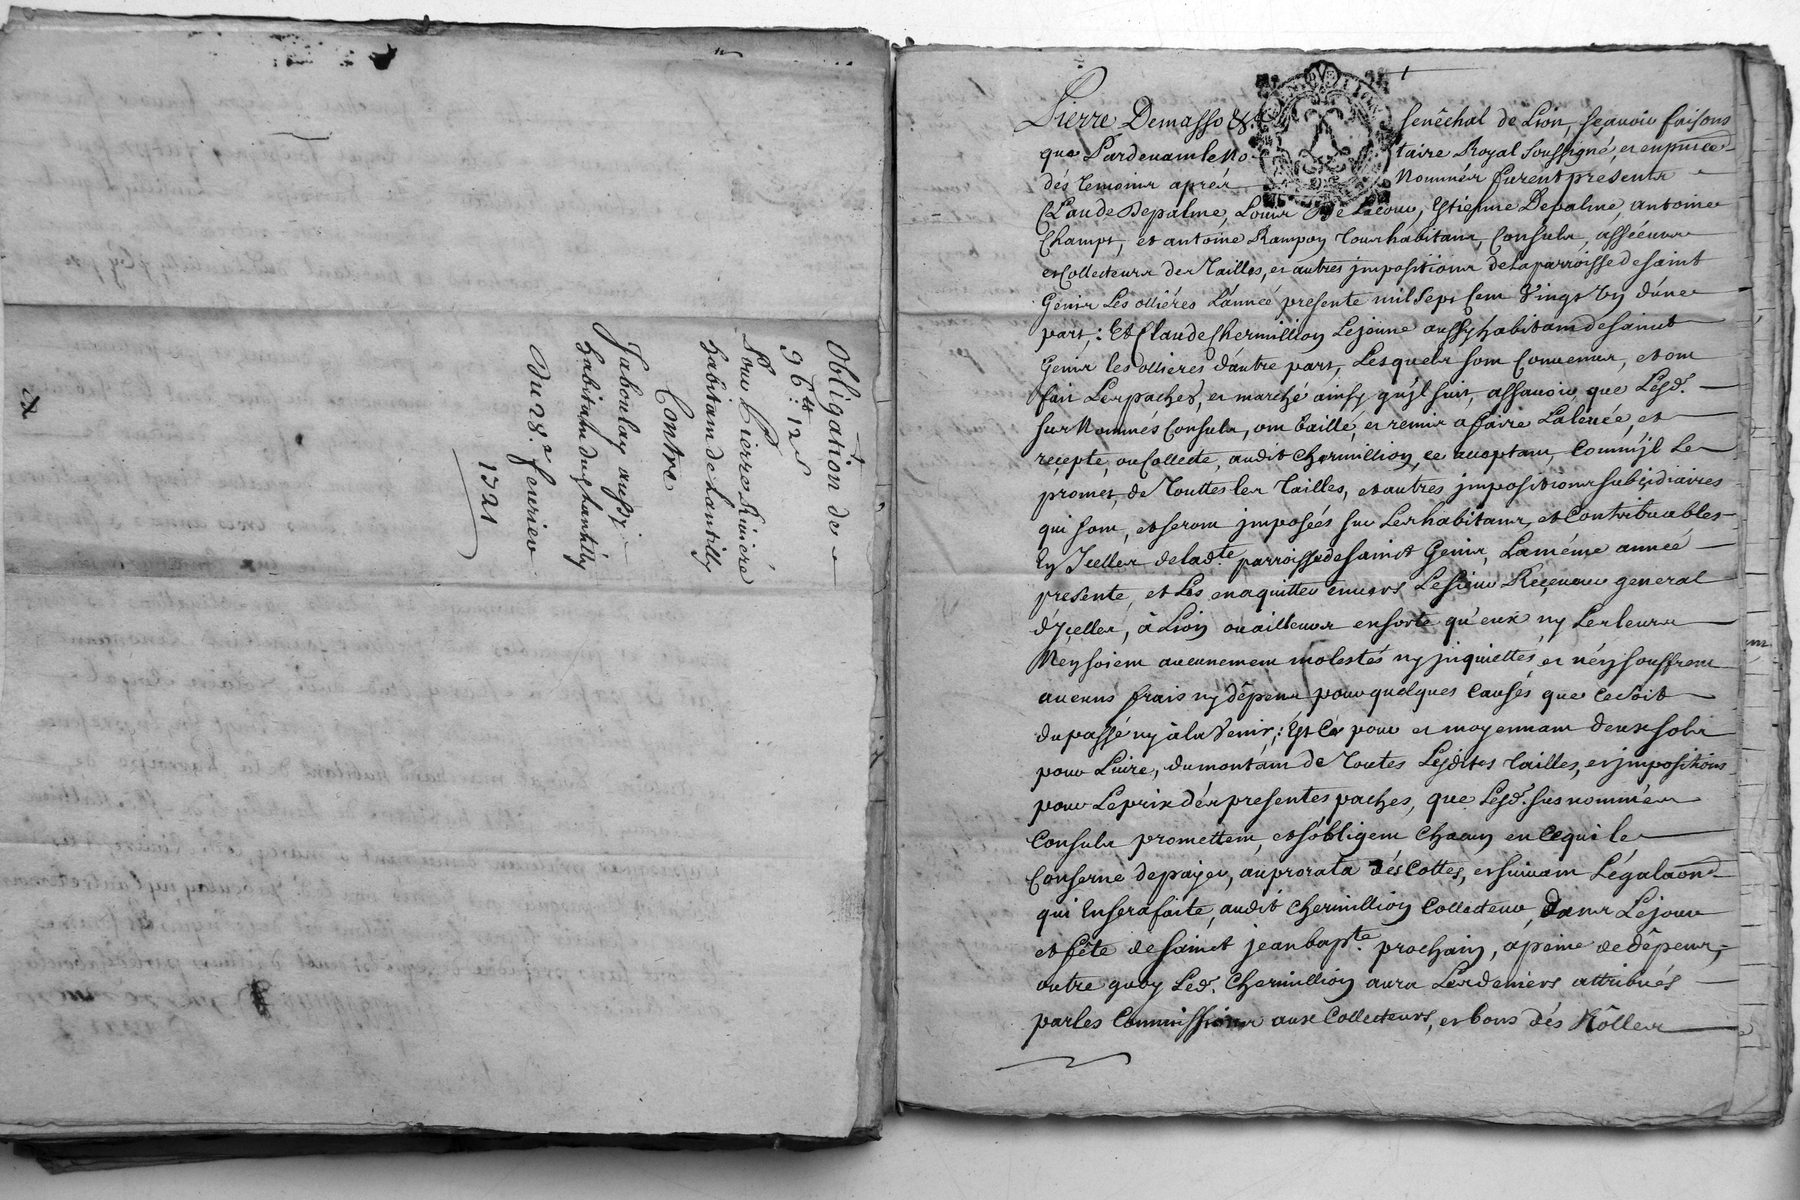 Obligation de
96lt: 12s
Pour Pierre Riviere
habitant de Lantilly
Contre
Jaboulay aussy
habitant dudt Lantilly
Du 28.e feurier
1721
Pierre Demasso &.a Senêchal de Lion, sçauoir faisons
que Pardeuant le No taire Royal soussigné, et en presce
dés temoins aprés Nommés furent presents
Claude Depalme, Louis De Lacour, Estienne Depalme, antoine
Champt, et antoine Rampon tous habitans, Consuls, asséeurs
et Collecteurs des Tailles, et autres jmpositions de la parroisse de saint
Genis Les ollières L'année presente mil sept cent vingt un d'une
part,: Et Claude Chermillion Lejeune aussy habitant de sainct
Genis les ollieres d'autre part, Lesquels sont Conuenus, et ont
fait Les paches, et marché ainsy qu'jl suit, assauoir que Lesd.
sus Nommés Consuls, ont baillé, et remis a faire La leuée, et
recepte, ou Collecte, audit Chermillion, ce acceptant, Comm'jl Le
promet, de Touttes les Tailles, et autres jmpositions subsidiaires
qui sont, et seront jmposées sur Les habitans, et Contribuables
En Jcelles de lad.te parroisse de sainct Genis, La méme année
presente, et Les en aquitter enuers Le sieur Réçeueur general
d'Jcelles, à Lion ou ailleurs en sorte qu'eux ny Les leurs
N'en soient aucunement molestés ny jnquiettés, et n'en souffrent
aucuns frais ny dêpens pour quelques Causes que ce soit
du passé ny à la Venir,: Est Ce pour et moyennant deux sols
pour Liure, du montant de Toutes Lesdites Tailles, et jmpositions
pour Le prix dés presentes paches, que Lesd. sus nommés
Consuls promettent, et s'obligent Chacun en Ce qui le
Conserne de payer, au prorata dés Cottes, et suiuant L'égalaon
qui En sera faite, audit Chermillion Collecteur, dans Le jour
et fête de sainct jean bapte. prochain, à peine de dêpens,
outre quoy Led. Chermillion aura Les deniers attribués
par les Commissions aux Collecteurs, et bons dés Rôlles